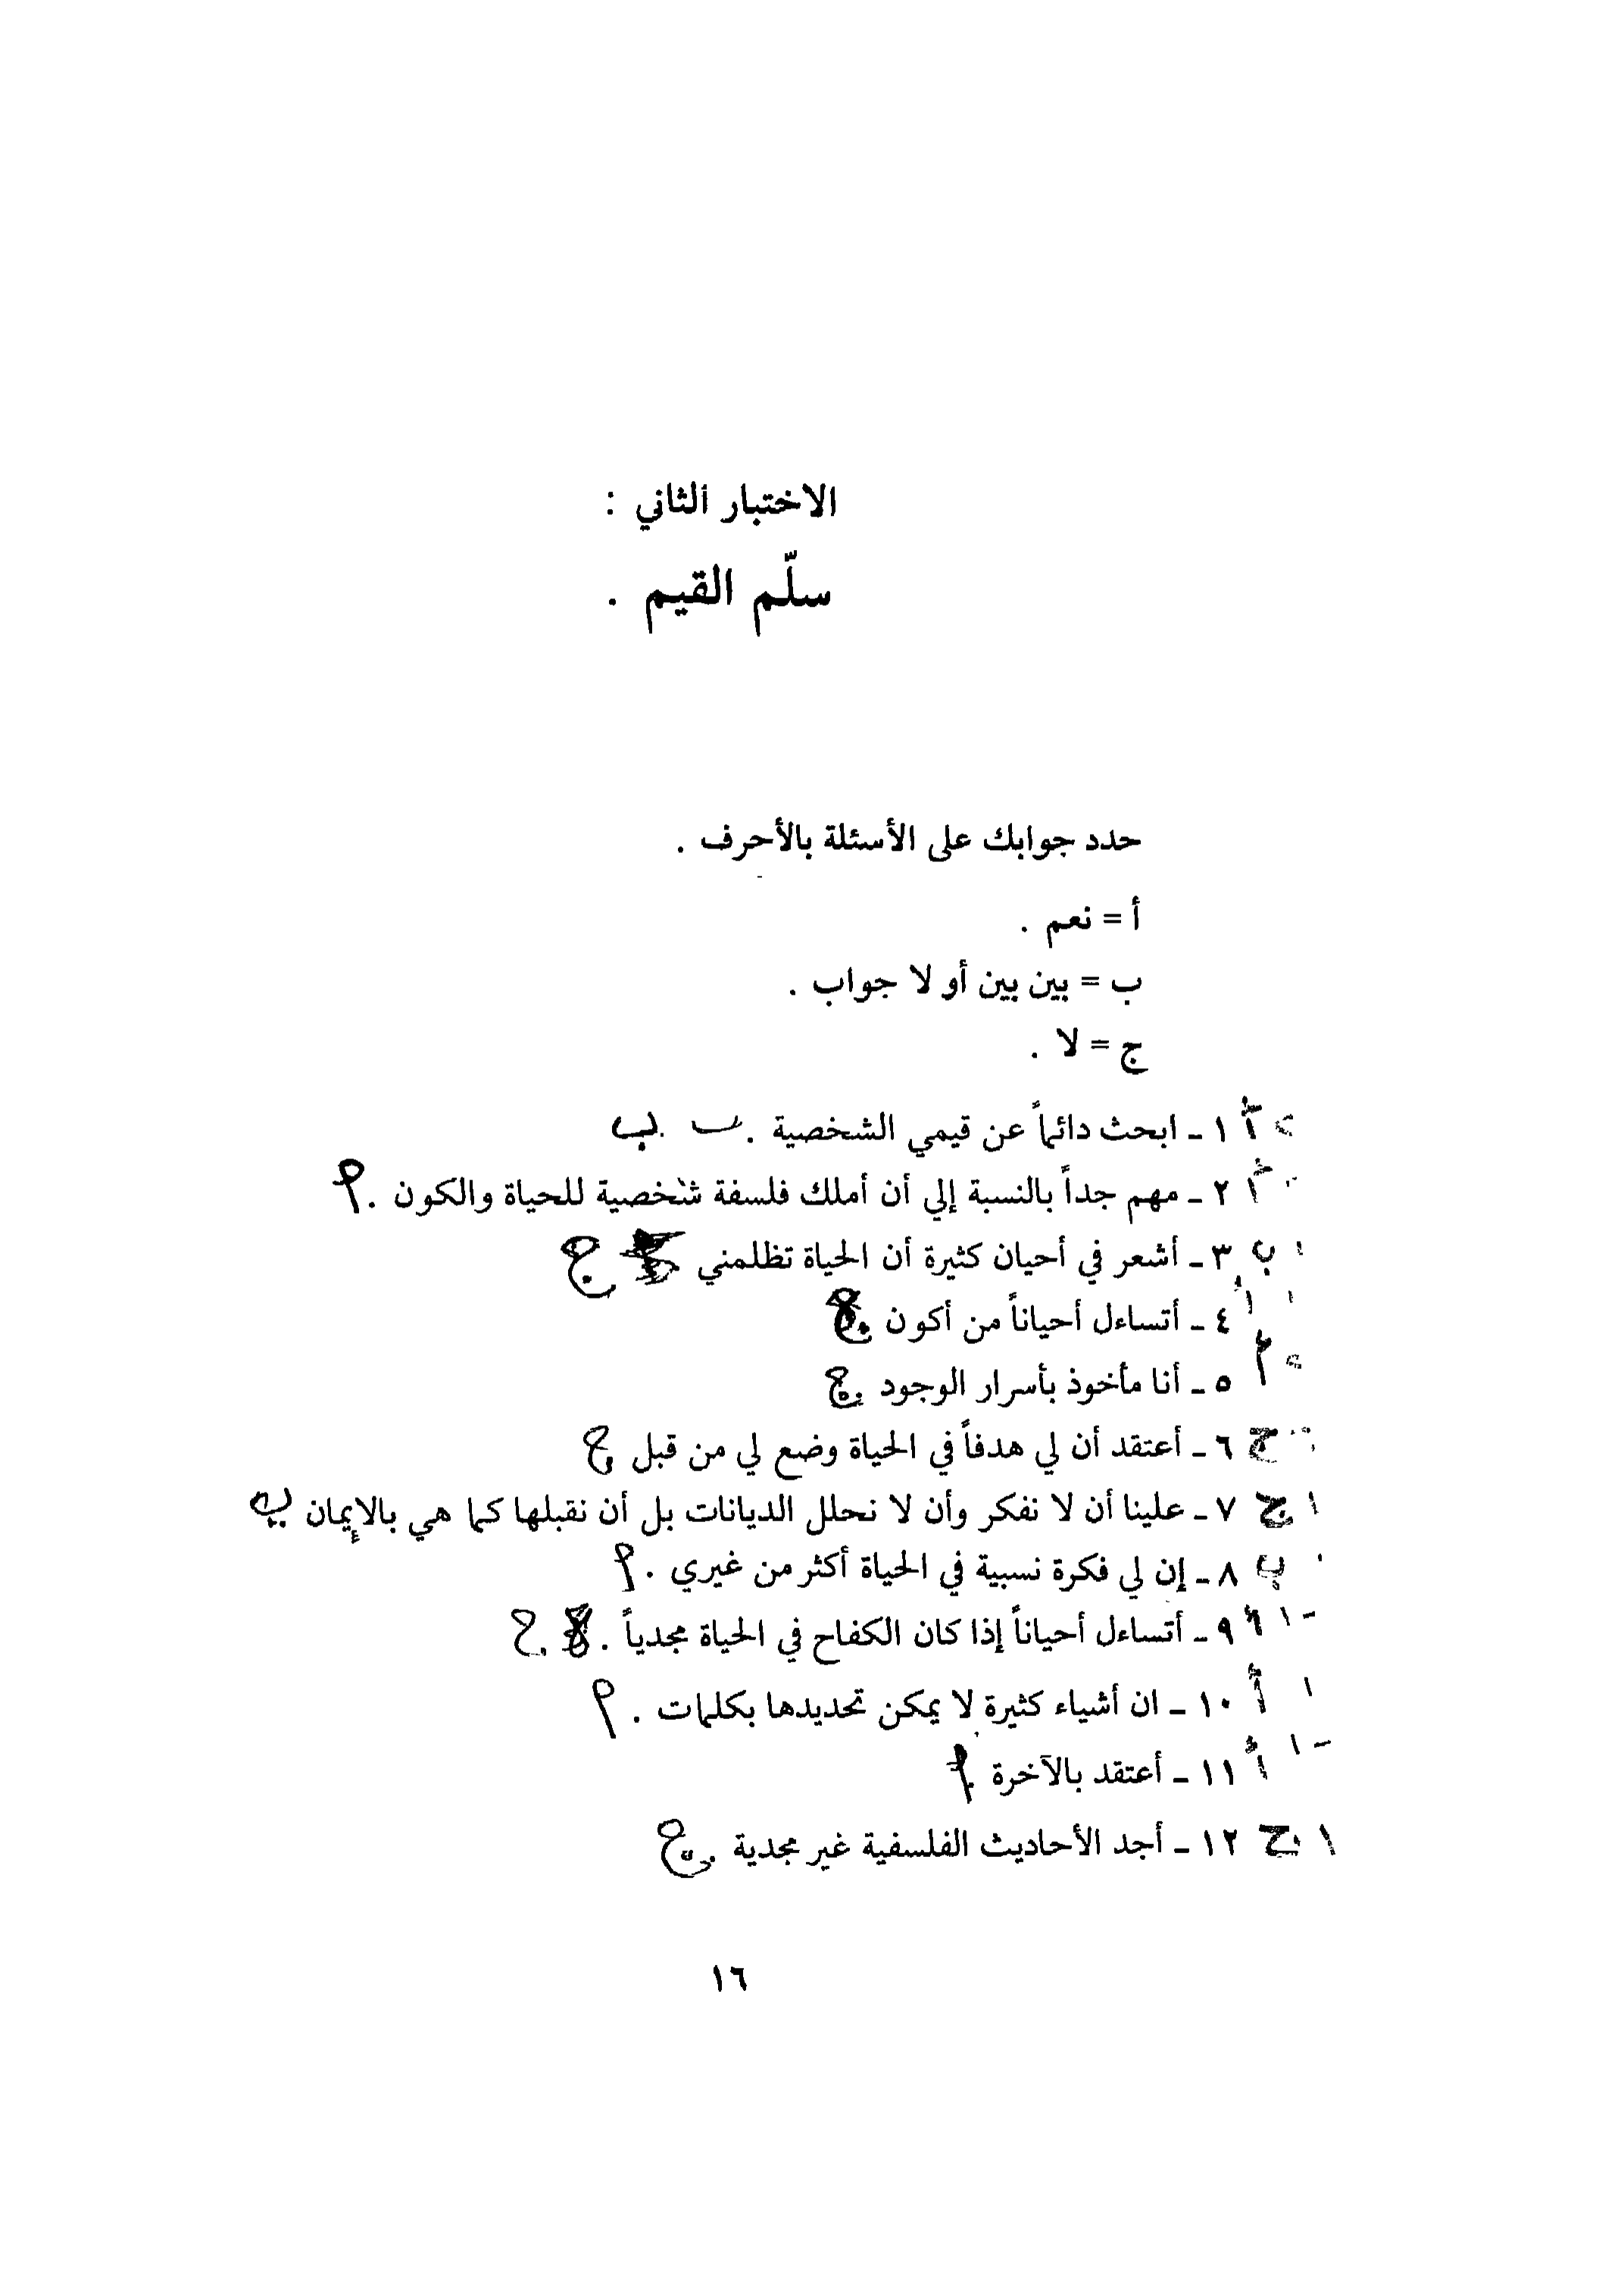 الاختبار الثاني :
سلّم القيم .
حدد جوابك على الأسئلة بالأحرف .
أ = نعم .
ب = بين بين أو لا جواب .
ج = لا .
أ ١ - ابحث دائماً عن قيمي الشخصية . ب ب
أ ٢ - مهم جداً بالنسبة إلي أن أملك فلسفة شخصية للحياة والكون . أ
ب ٣ - أشعر في أحيان كثيرة أن الحياة تظلمني ج
أ ٤ - أتساءل أحياناً من أكون ج
أ ٥ - أنا مأخوذ بأسرار الوجود . ج
ج ٦ - أعتقد أن لي هدفاً في الحياة وضع لي من قبل ج
ج ٧ - علينا أن لا نفكر وأن لا نحلل الديانات بل أن نقبلها كما هي بالإيمان ب
ب ٨ - إن لي فكرة نسبية في الحياة أكثر من غيري . أ
أ ٩ - أتساءل أحياناً إذا كان الكفاح في الحياة مجدياً . ج
أ ١٠ - ان أشياء كثيرة لا يمكن تحديدها بكلمات . أ
أ ١١ - أعتقد بالآخرة . أ
ج ١٢ - أجد الأحاديث الفلسفية غير مجدية . ج
١٦